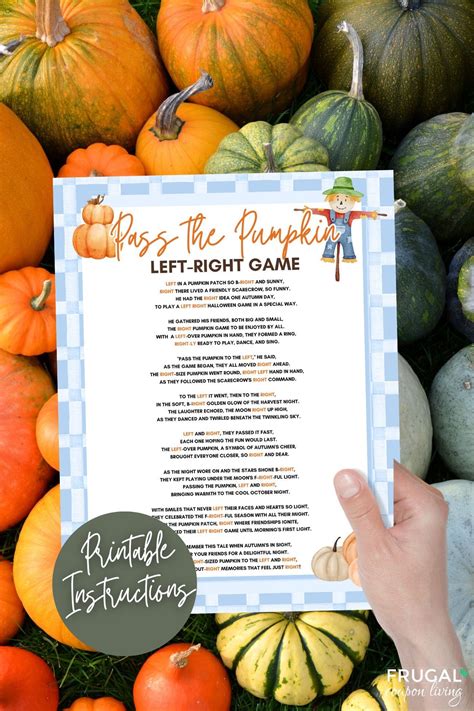 Pass the Pumpkin
LEFT-RIGHT GAME
LEFT IN A PUMPKIN PATCH SO B-RIGHT AND SUNNY,
RIGHT THERE LIVED A FRIENDLY SCARECROW, SO FUNNY.
HE HAD THE RIGHT IDEA ONE AUTUMN DAY,
TO PLAY A LEFT RIGHT HALLOWEEN GAME IN A SPECIAL WAY.
HE GATHERED HIS FRIENDS, BOTH BIG AND SMALL.
THE RIGHT PUMPKIN GAME TO BE ENJOYED BY ALL.
WITH A LEFT-OVER PUMPKIN IN HAND, THEY FORMED A RING,
RIGHT-LY READY TO PLAY, DANCE, AND SING.
"PASS THE PUMPKIN TO THE LEFT," HE SAID,
AS THE GAME BEGAN, THEY ALL MOVED RIGHT AHEAD.
THE RIGHT-SIZED PUMPKIN WENT ROUND, RIGHT LEFT HAND IN HAND,
AS THEY FOLLOWED THE SCARECROW'S RIGHT COMMAND.
TO THE LEFT IT WENT, THEN TO THE RIGHT,
IN THE SOFT, B-RIGHT GOLDEN GLOW OF THE HARVEST NIGHT.
THE LAUGHTER ECHOED, THE MOON RIGHT UP HIGH,
AS THEY DANCED AND TWIRLED BENEATH THE TWINKLING SKY.
LEFT AND RIGHT, THEY PASSED IT FAST,
EACH ONE HOPING THE FUN WOULD LAST.
THE LEFT-OVER PUMPKIN, A SYMBOL OF AUTUMN'S CHEER,
BROUGHT EVERYONE CLOSER, SO RIGHT AND DEAR.
AS THE NIGHT WORE ON AND THE STARS SHONE B-RIGHT,
THEY KEPT PLAYING UNDER THE MOON'S F-RIGHT-FUL LIGHT.
PASSING THE PUMPKIN, LEFT AND RIGHT,
BRINGING WARMTH TO THE COOL OCTOBER NIGHT.
WITH SMILES THAT NEVER LEFT THEIR FACES AND HEARTS SO LIGHT,
THEY CELEBRATED THE F-RIGHT-FUL SEASON WITH ALL THEIR MIGHT.
PUMPKIN PATCH, RIGHT WHERE FRIENDSHIPS IGNITE,
LEFT RIGHT GAME CONTINUED UNTIL MORNING'S FIRST LIGHT.
REMEMBER THIS TALE WHEN AUTUMN'S IN SIGHT,
YOUR FRIENDS FOR A DELIGHTFUL NIGHT.
-SIZED PUMPKIN TO THE LEFT AND RIGHT,
-OUT-RIGHT MEMORIES THAT FEEL JUST RIGHT!
Printable
Instructions
FRUGAL
coupon living